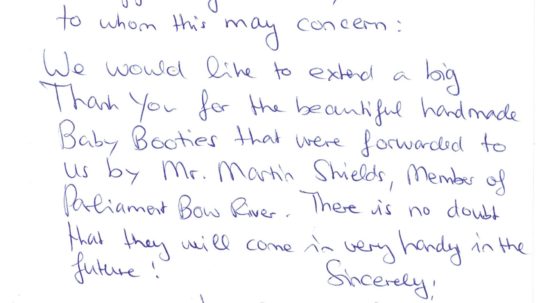 to whom this may concern:
We would like to extend a big
Thank You for the beautiful handmade
Baby Booties that were forwarded to
us by Mr. Martin Shields, Member of
Parliament Bow River. There is no doubt
that they will come in very handy in the
future! Sincerely,